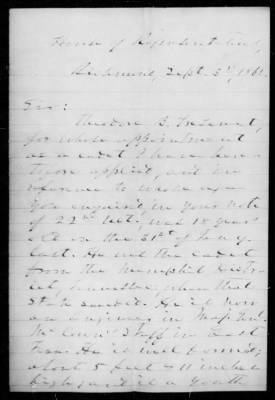 House of Representatives,
Richmond, Sept. 3rd, 186
Sir:
Theodore B.
for whose appointment
as a cadet I have here-
tofore applied, and in
reference to whose age
you enquire, in your note
of 22nd ult., was 18 years
old on the 31st of
last. He was the cadet
from the Memphis Dist-
rict, Tennessee, when that
State seceded. He is now
an engineer in Maj. Genl.
McCown's Staff in East
Tenn. He is well formed,
about 5 feet 11 inches
high, and is a youth